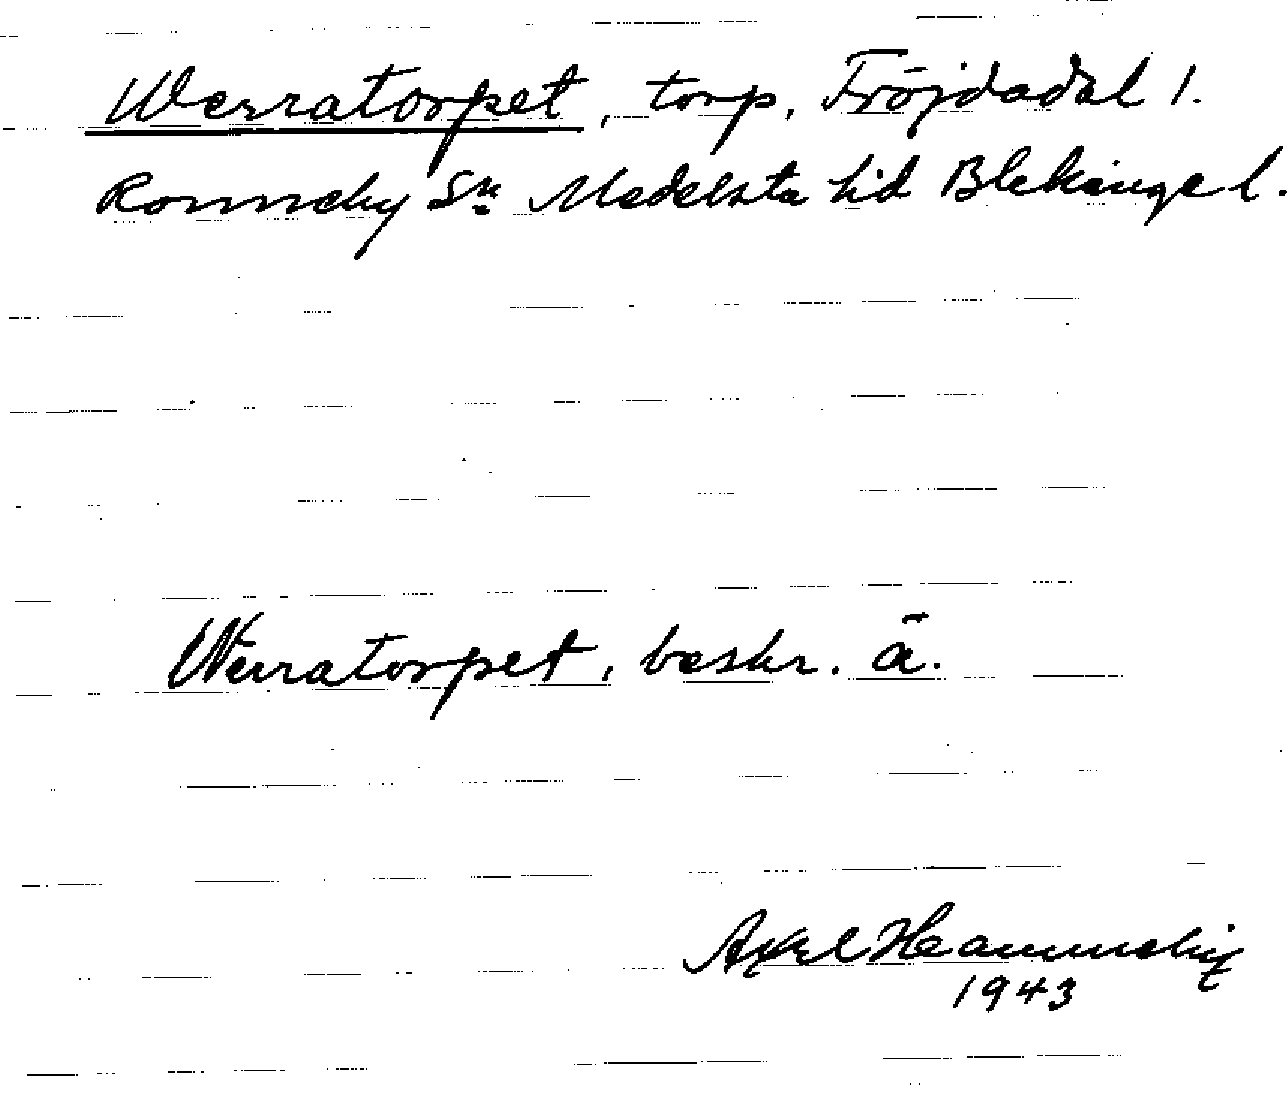 Werratorpet, torp, Fröjdadal 1.
Ronneby Sn Medelsta hd Blekinge l.
Werratorpet, beskr. å.
Axel
1943